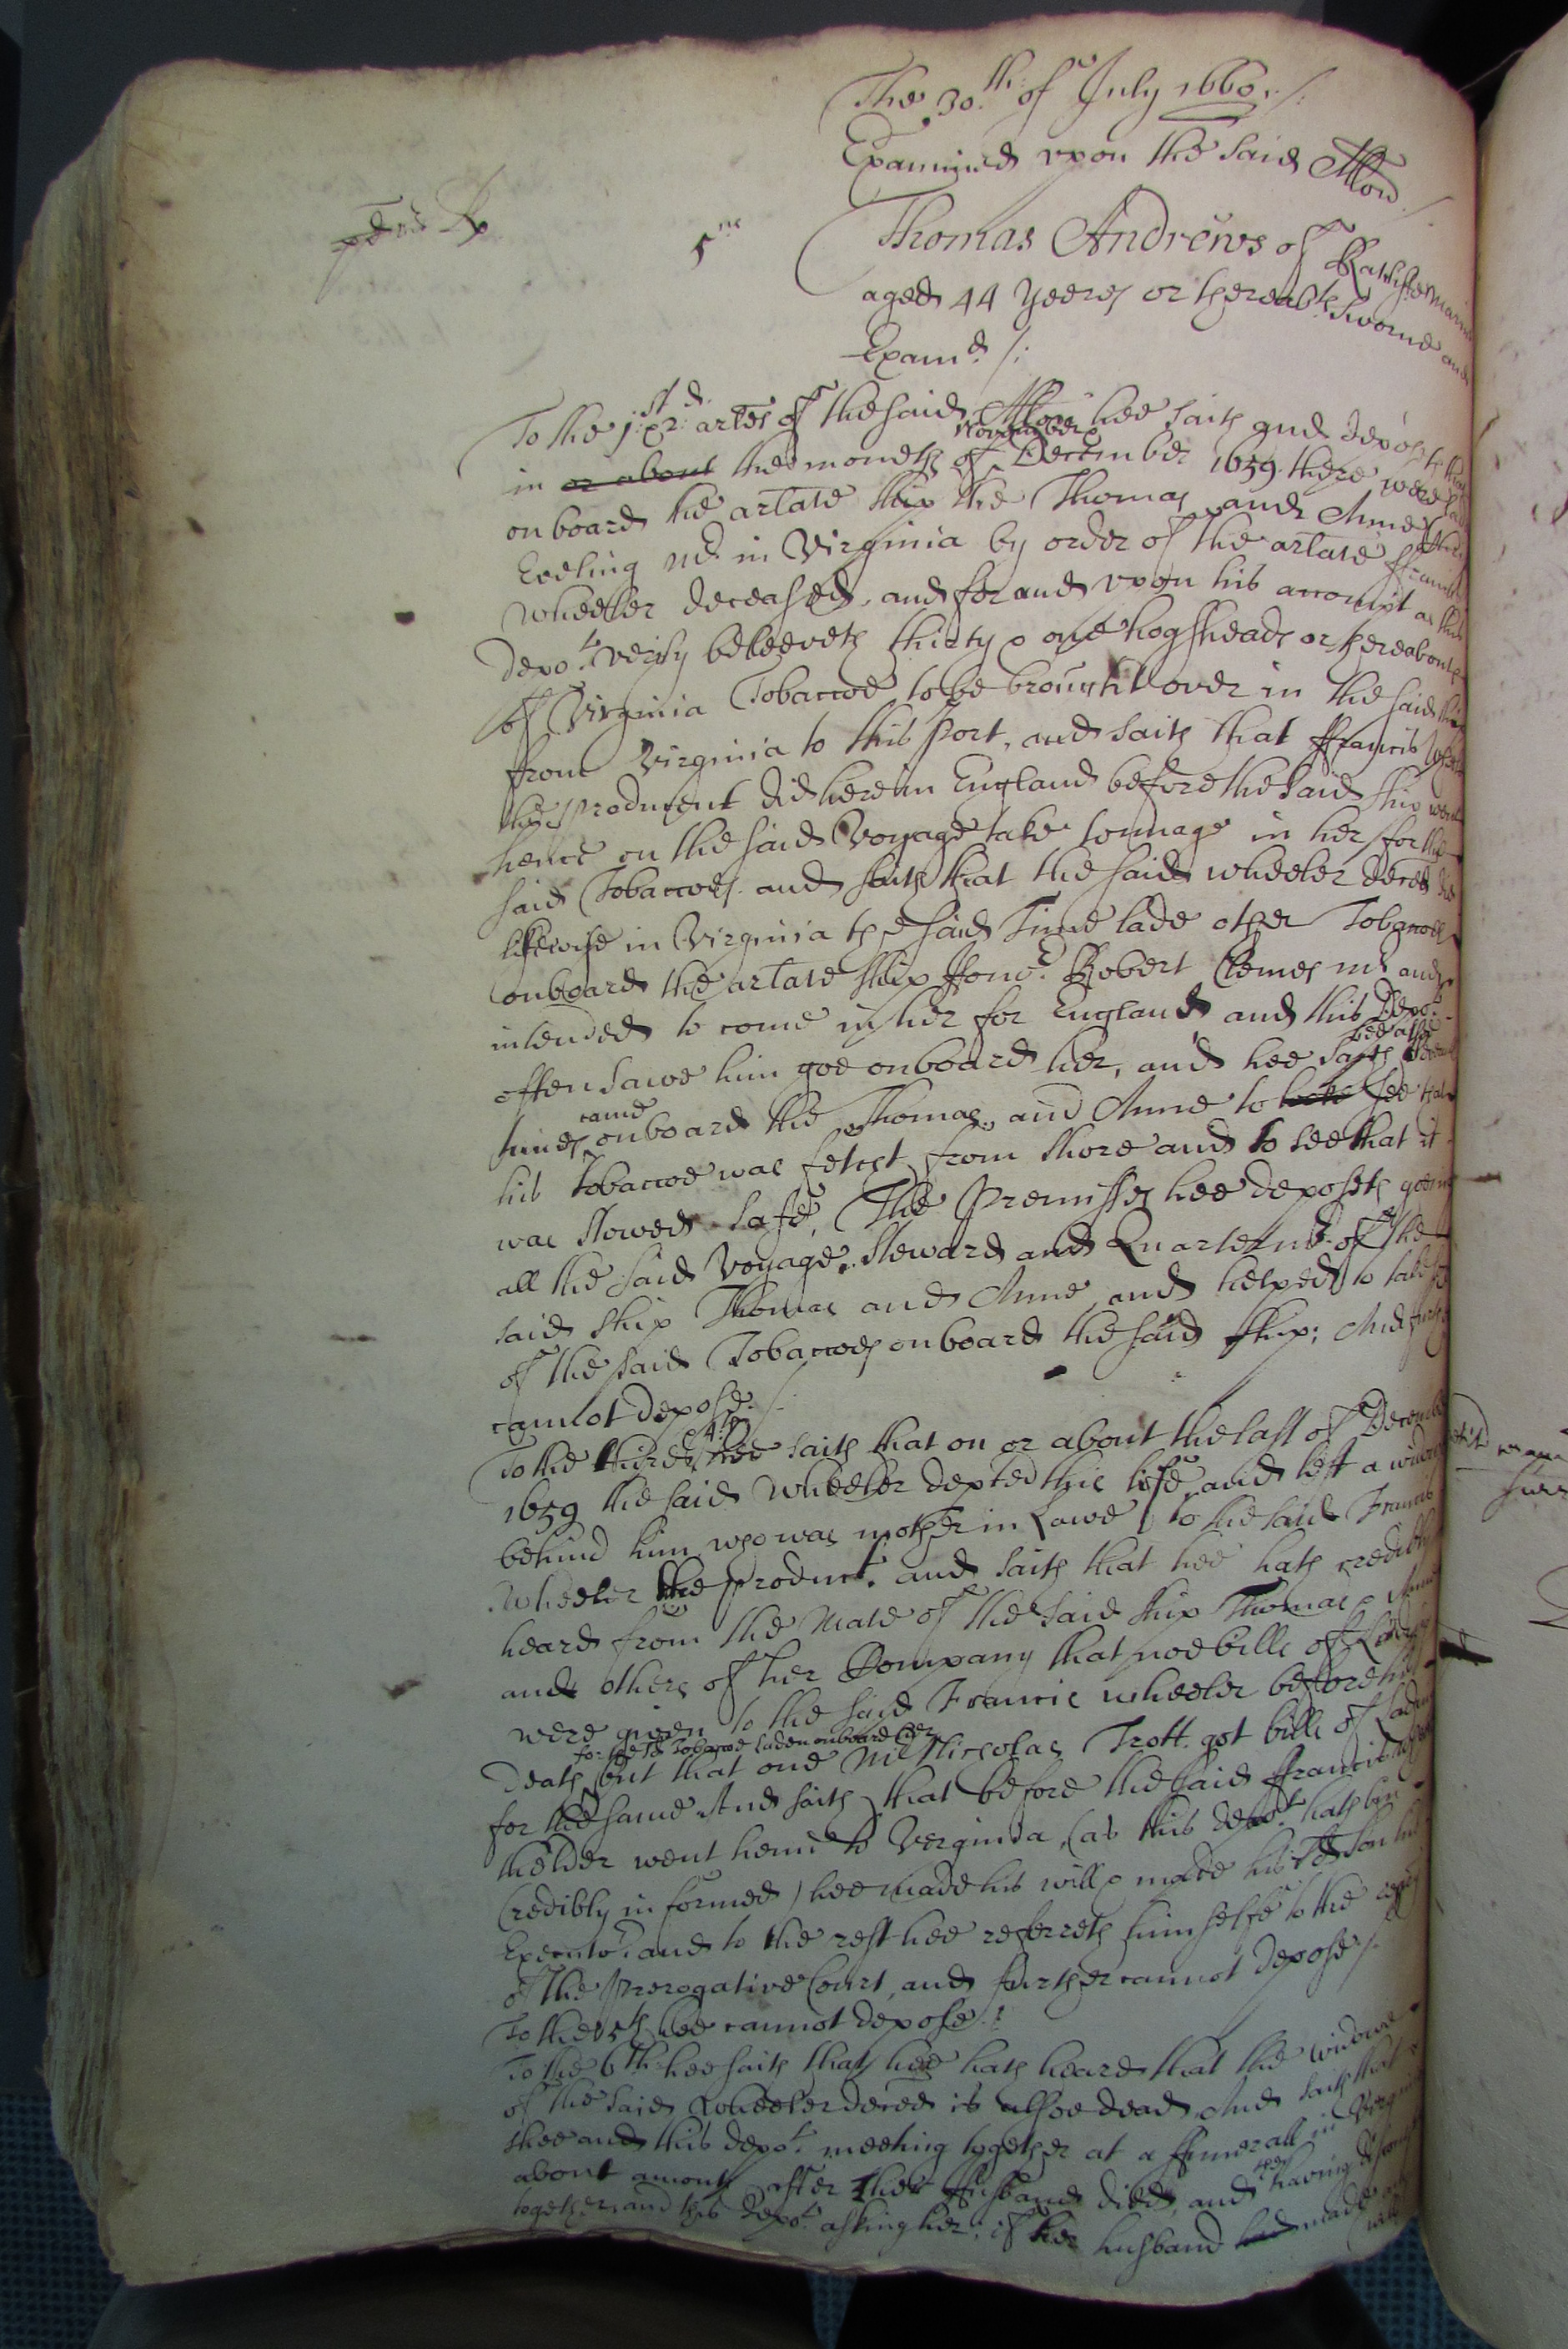 The 30th. of July 1660./:
Examined vpon the said Allon
5us
Thomas Andrewes of Ratcliffe Marin
aged 44 yeeres or thereabts sworne and
Examd./:
To the j:st & 2:d artes of the said Allon hee saith and deposeth that
in or about the moneth of November December 1659 there were lad
on board the artate ship the Thomas and Anne
Eveling mr. in Virginia by order of the artate ffrancis
Wheeler deceased, and for and vpon his accompt as this
depot. verily beleeveth thirty & one hogsheads or thereabouts
of Virginia Tobaccoe to be brought over in the said ship
from Virginia to this Port, and saith that ffrancis Wheeler
the producent did here in England before the said ship went
hence on the said Voyage take tonnage in her for the
said Tobaccoes. and saith that the said wheeler deced did
likewise in Virginia the said Time lade other Tobaccoes
onboard the artate ship Honor. Robert Clemes mr. and
intended to come in her for England and this Depot.
often sawe him goe onboard her, and hee saith hee also severall
times came onboard the Thomas and Anne to looke see that
his Tobaccoe was fetcht from shore and to see that it
was stowed safe, The Premisses hee deposeth goeing
all the said Voyage Steward and Quartermr. of the
said ship Thomas and Anne, and helped to take
of the said Tobaccoes onboard the said ship; And further
cannot depose./:
To the third & 4:th hee saith that on or about the last of December
1659 the said Wheeler depted this life, and left a widowe
behind him, who was mother in Lawe to the said Francis
Wheeler the producent. and saith that hee hath credibly
heard from the Mate of the said ship Thomas & Anne
and others of her Company that noe bills of Lading
were given to the said Francis wheeler before his
death for the sd Tobaccoe laden onboard her, but that one Mr Nicholas Trott. got bills of Lading
for the same. And saith that before the said ffrancis Wheeler
the elder went hence to Verginia, (as this depot. hath bin
Credibly informed) hee made his will & made his sd son his
Executor. and to the rest hee referreth himselfe to the
of the Prerogative Court, and further cannot depose/.
To the 5th hee cannot depose.:
To the 6th. hee saith that hee hath heard that the widowe
of the said wheeler deced is alsoe dead, And saith that
shee and this depot. meeting together at a ffunerall in Verginia
about a month after her husband died, and they having discourse
together, and this depot. asking her; if her husband had made
will